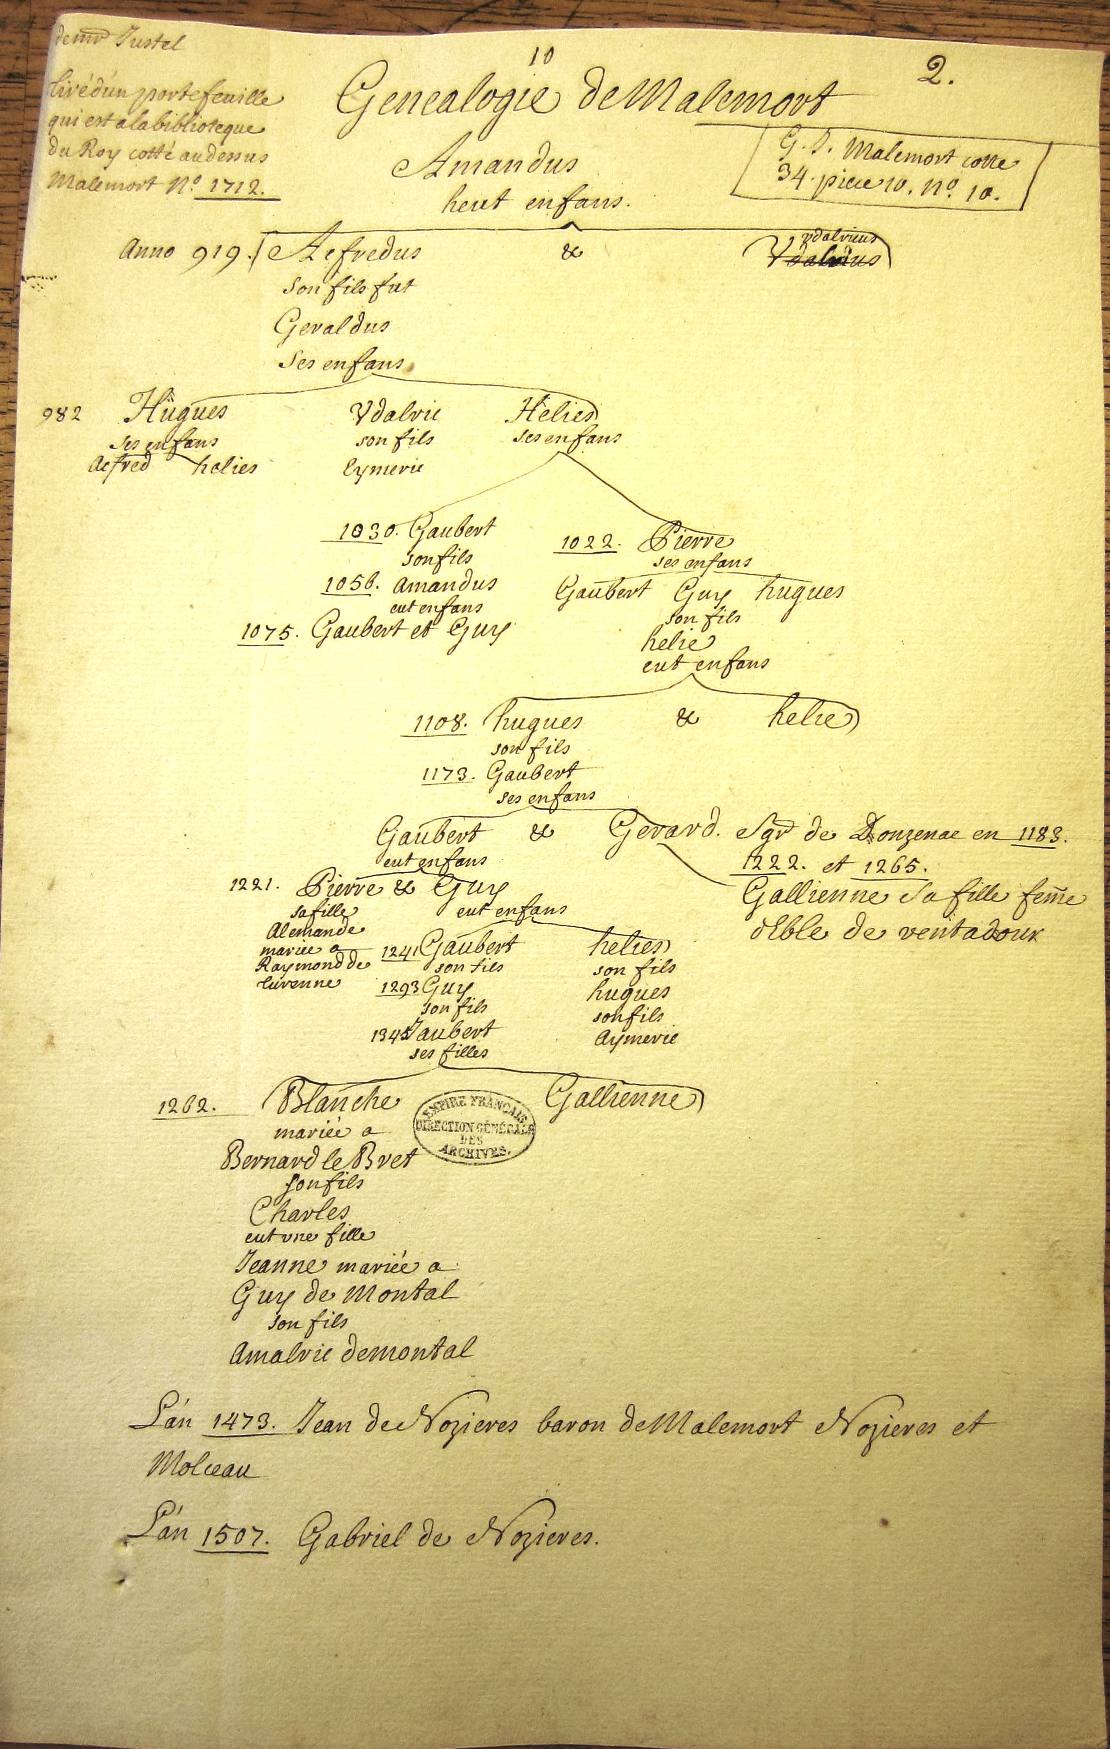 de mr Justel
10
2.
tiré d'un portefeuille
qui est a la biblioteque
du Roy cotté au dessus
Malemort No 1712.
Genealogie de Malemort
G. S. Malemort cotte
34. piece 10. No. 10.
Amandus
heut enfans.
Anno 919. Aefredus & Vdalricus
son fils fut
Geraldus
ses enfans
982 Hugues Vdalric Helies
ses enfans son fils ses enfans
Aefred helies Eymeric
1030. Gaubert 1022. Pierre
son fils ses enfans
1056. amandus Gaubert Guy hugues
eut enfans son fils
1075. Gaubert et Guy helie
eut enfans
1108. hugues & helie
son fils
1173. Gaubert
ses enfans
Gaubert & Gerard. Sgr de Donzenac en 1183.
eut enfans 1222. et 1265.
1221. Pierre & Guy Gallienne sa fille feme
sa fille eut enfans d'Eble de ventadour
Alemande
mariée a 1241 Gaubert helies
Raymond de son fils son fils
turenne 1293 Guy hugues
son fils son fils
1345 Jaubert Aymeric
ses filles
1262. Blanche Gallienne
EMPIRE FRANÇAIS
DIRECTION GÉNÉRALE
DES
ARCHIVES.
mariée a
Bernard le Bret
son fils
Charles
eut vne fille
Jeanne mariée a
Guy de Montal
son fils
Amalric de montal
L'an 1473. Jean de Nozieres baron de Malemort Nozieres et
Molceau
L'an 1507. Gabriel de Nozieres.